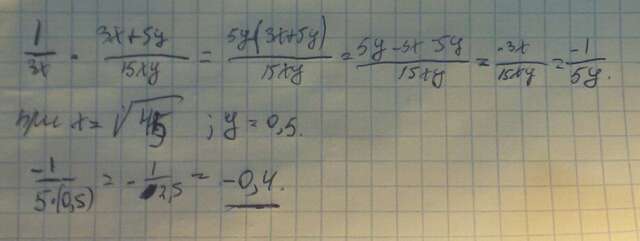 1/3x - 3x+5y/15xy = 5y-(3x+5y)/15xy = 5y-3x-5y/15xy = -3x/15xy = -1/5y.
при x = √45 ; y = 0,5.
-1/5·(0,5) = -1/2,5 = -0,4.